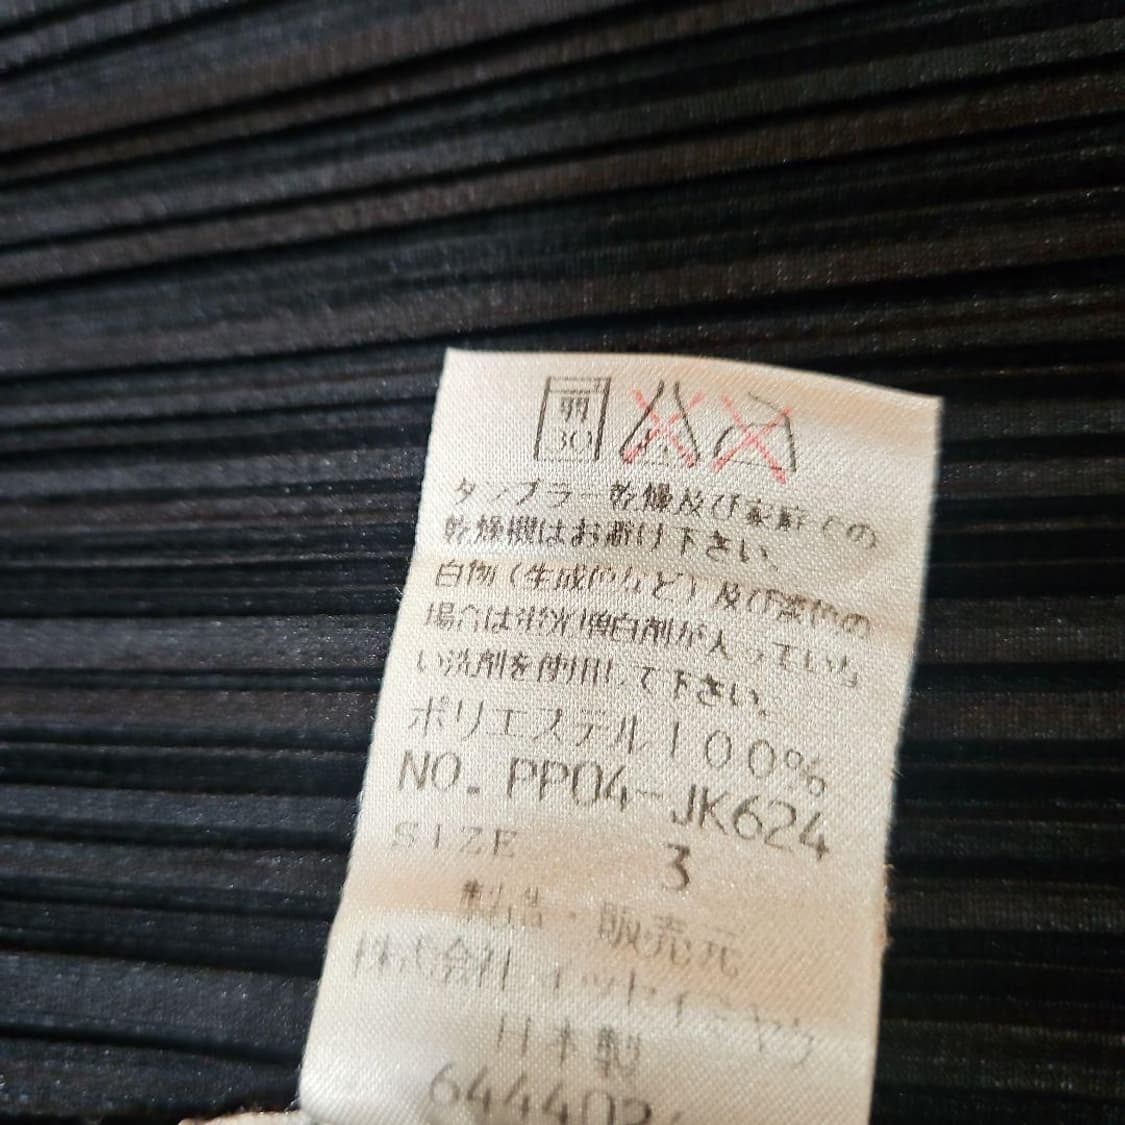 弱
30
タンブラー乾燥及び家庭での
乾燥機はお避け下さい、
白物(生成色など)及び淡色の
場合は蛍光増白剤が入っていな
い洗剤を使用して下さい。
ポリエステル100%
NO. PP04-JK624
SIZE 3
製造・販売元
株式会社 イッセイミヤケ
日本製